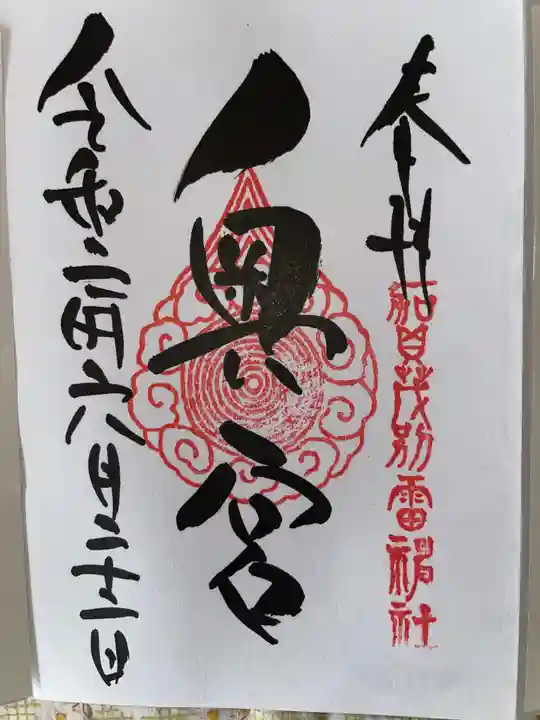 奉拝
賀茂別雷神社
奥宮
令和 年 月二十一日